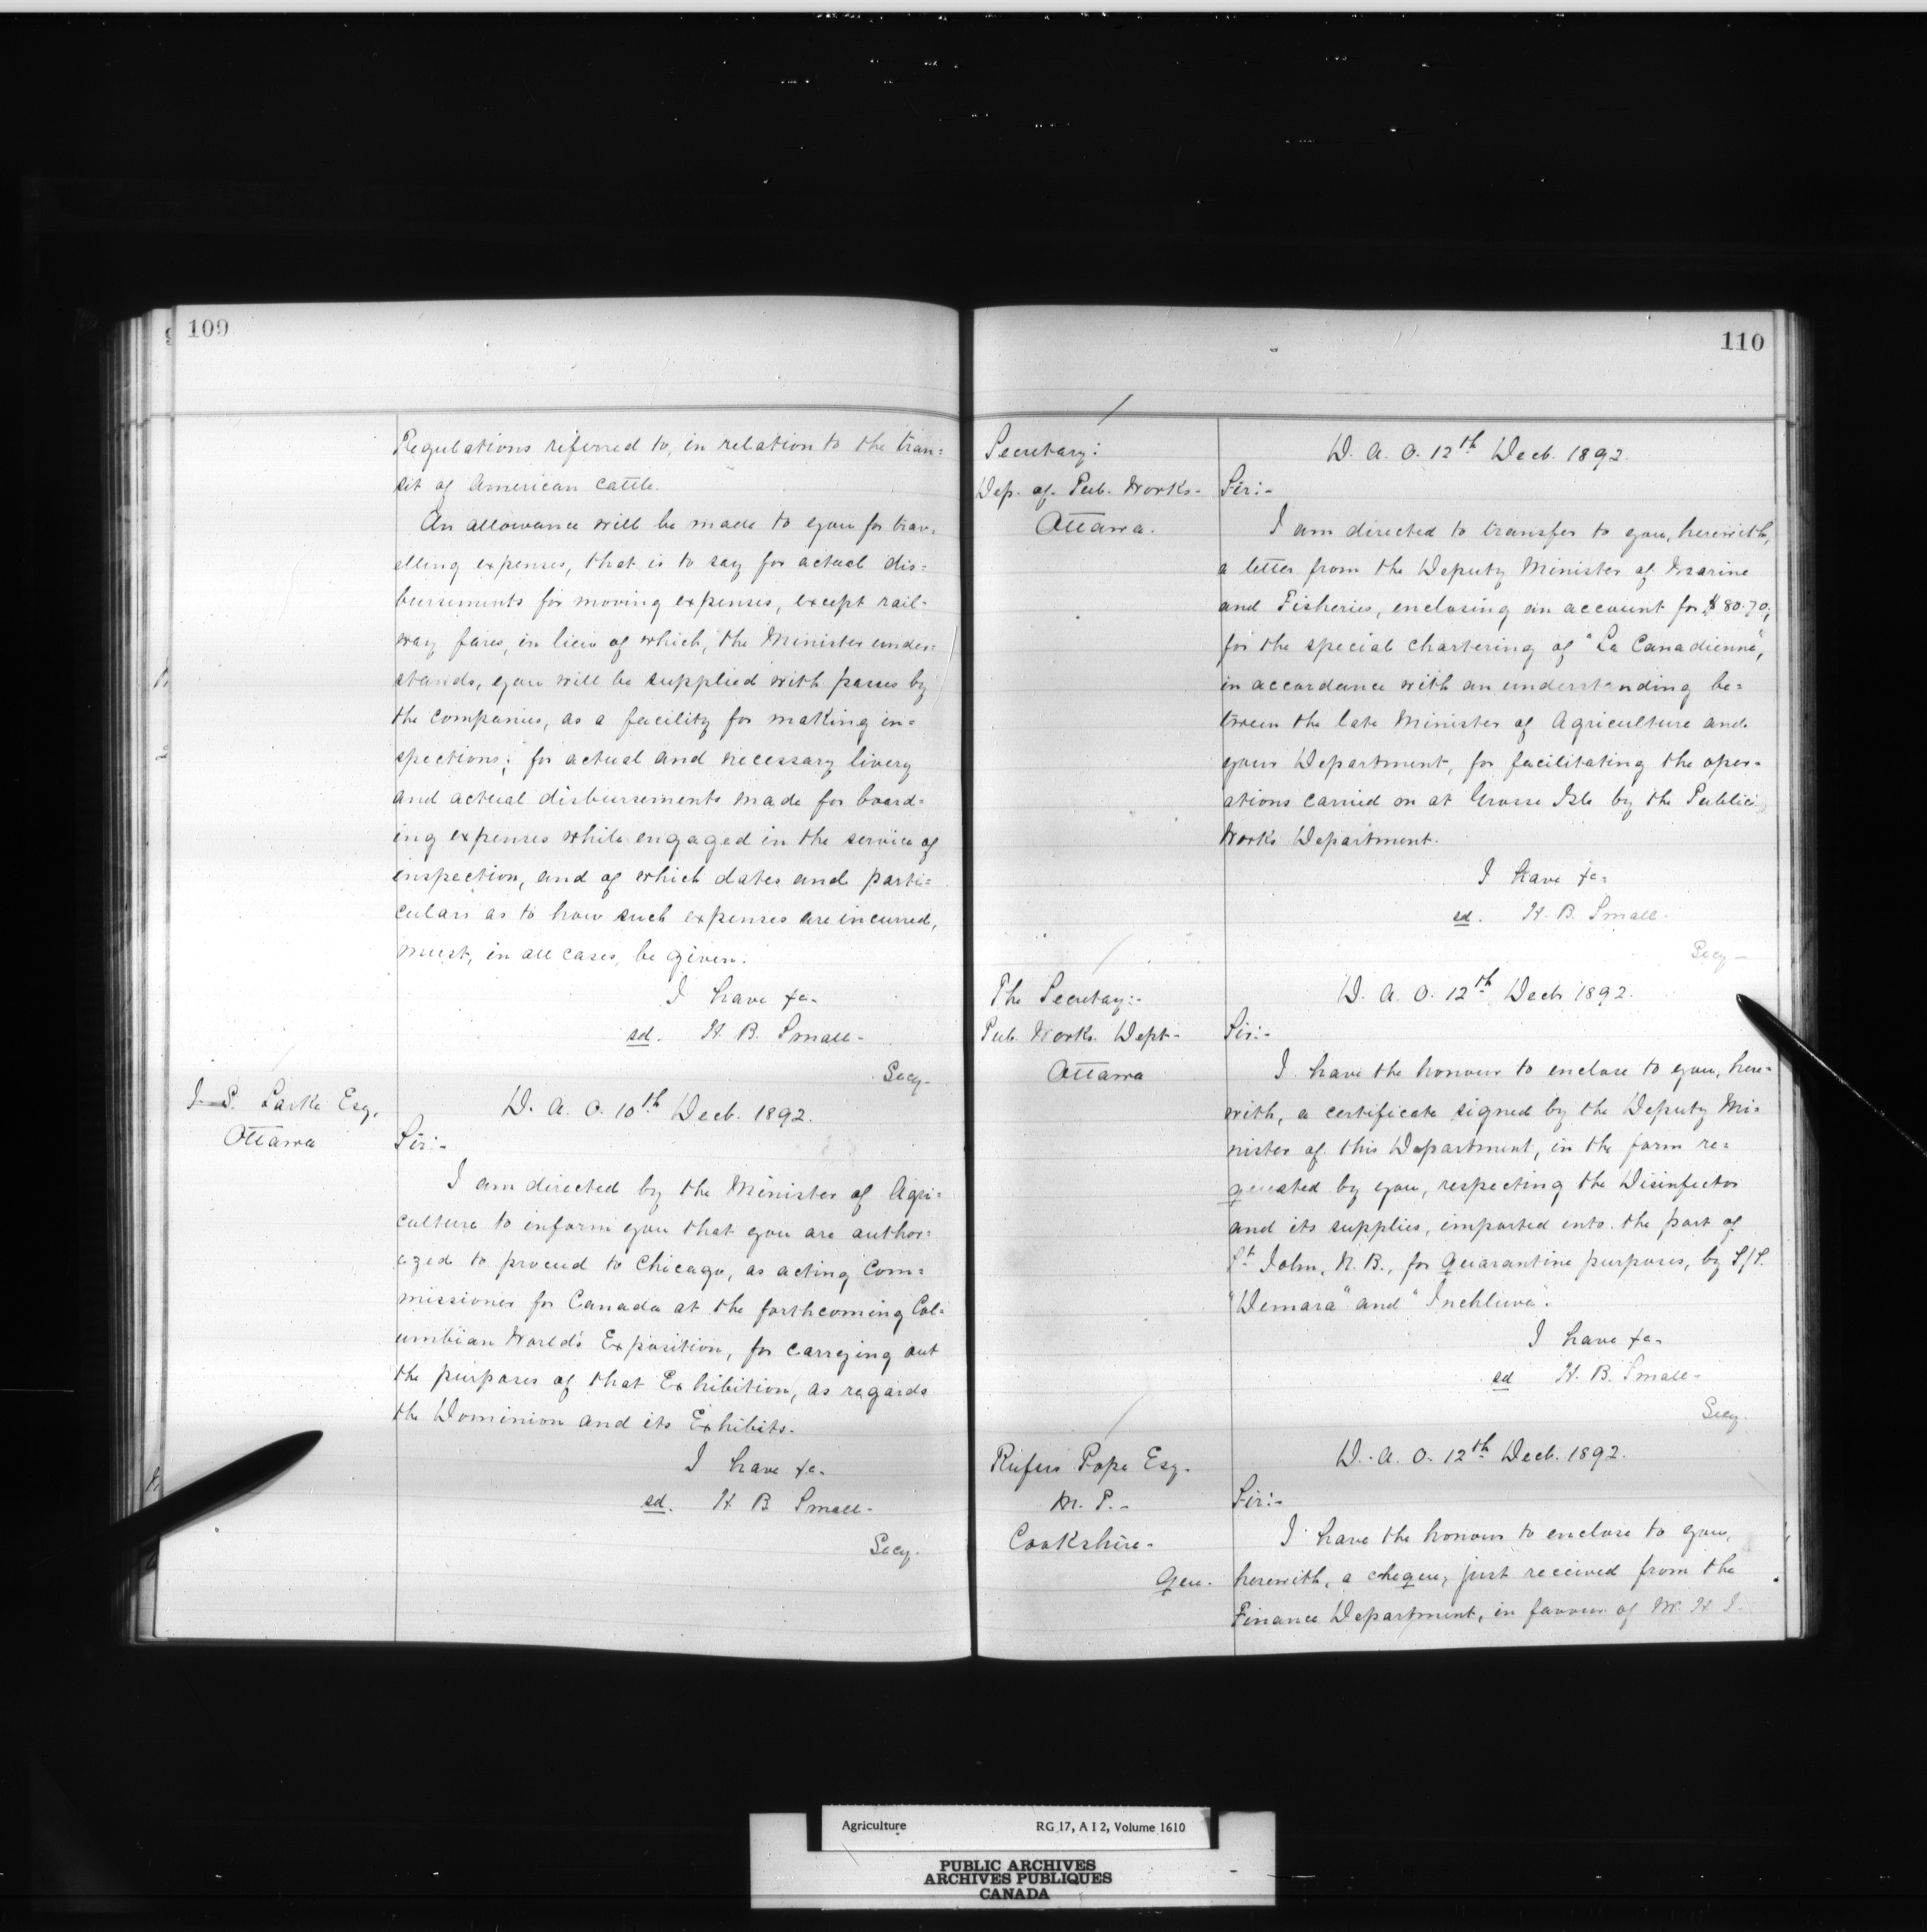 109
Regulations referred to, in relation to the tran=
sit of American Cattle.
An allowance will be made to you for trav-
elling expenses, that is to say for actual dis=
bursements for moving expenses, except rail-
way fares, in lieu of which, the Minister under=
stands, you will be supplied with passes by
the Companies, as a facility for making in=
spections; for actual and necessary livery
and actual disbursements made for board=
ing expenses while engaged in the service of
inspection, and of which dates and parti=
culars as to how such expenses are incurred,
must, in all cases, be given.
I have &c-
sd. H. B. Small-
Secy-
J. S. Larke Esq.
Ottawa
D. A. O. 10th Decb. 1892.
Sir:-
I am directed by the Minister of Agri=
culture to inform you that you are author=
ized to proceed to Chicago, as acting Com=
missioner for Canada at the forthcoming Col=
umbian World's Exposition, for carrying out
the purposes of that Exhibition, as regards
the Dominion and its Exhibits.
I have &c-
sd. H. B. Small-
Secy.
110
Secretary:
Dep. of Pub. Works-
Ottawa.
D. A. O. 12th Decb. 1892.
Sir:-
I am directed to transfer to you, herewith,
a letter from the Deputy Minister of Marine
and Fisheries, enclosing an account for $80.70,
for the special chartering of "La Canadienne",
in accordance with an understanding be=
tween the late Minister of Agriculture and
your Department, for facilitating the oper-
ations carried on at Grosse Isle by the Public
Works Department.
I have &c-
sd. H. B. Small-
Secy-
The Secretay:-
Pub. Works. Dept-
Ottawa
D. A. O. 12th Decb 1892.
Sir:-
I have the honour to enclose to you, here=
with, a certificate signed by the Deputy Mi=
nister of this Department, in the form re=
quested by you, respecting the Disinfector
and its supplies, imported into the port of
St John, N. B., for Quarantine purposes, by S/S.
"Demara" and "Inchluva".
I have &c-
sd H. B. Small-
Secy.
Rufus Pope Esq.
M. P.-
Cookshire-
Que.
D. A. O. 12th Decb. 1892.
Sir:-
I have the honour to enclose to you,
herewith, a cheque, just received from the
Finance Department, in favour of Mr. H. I.
Agriculture RG 17, A I 2, Volume 1610
PUBLIC ARCHIVES
ARCHIVES PUBLIQUES
CANADA